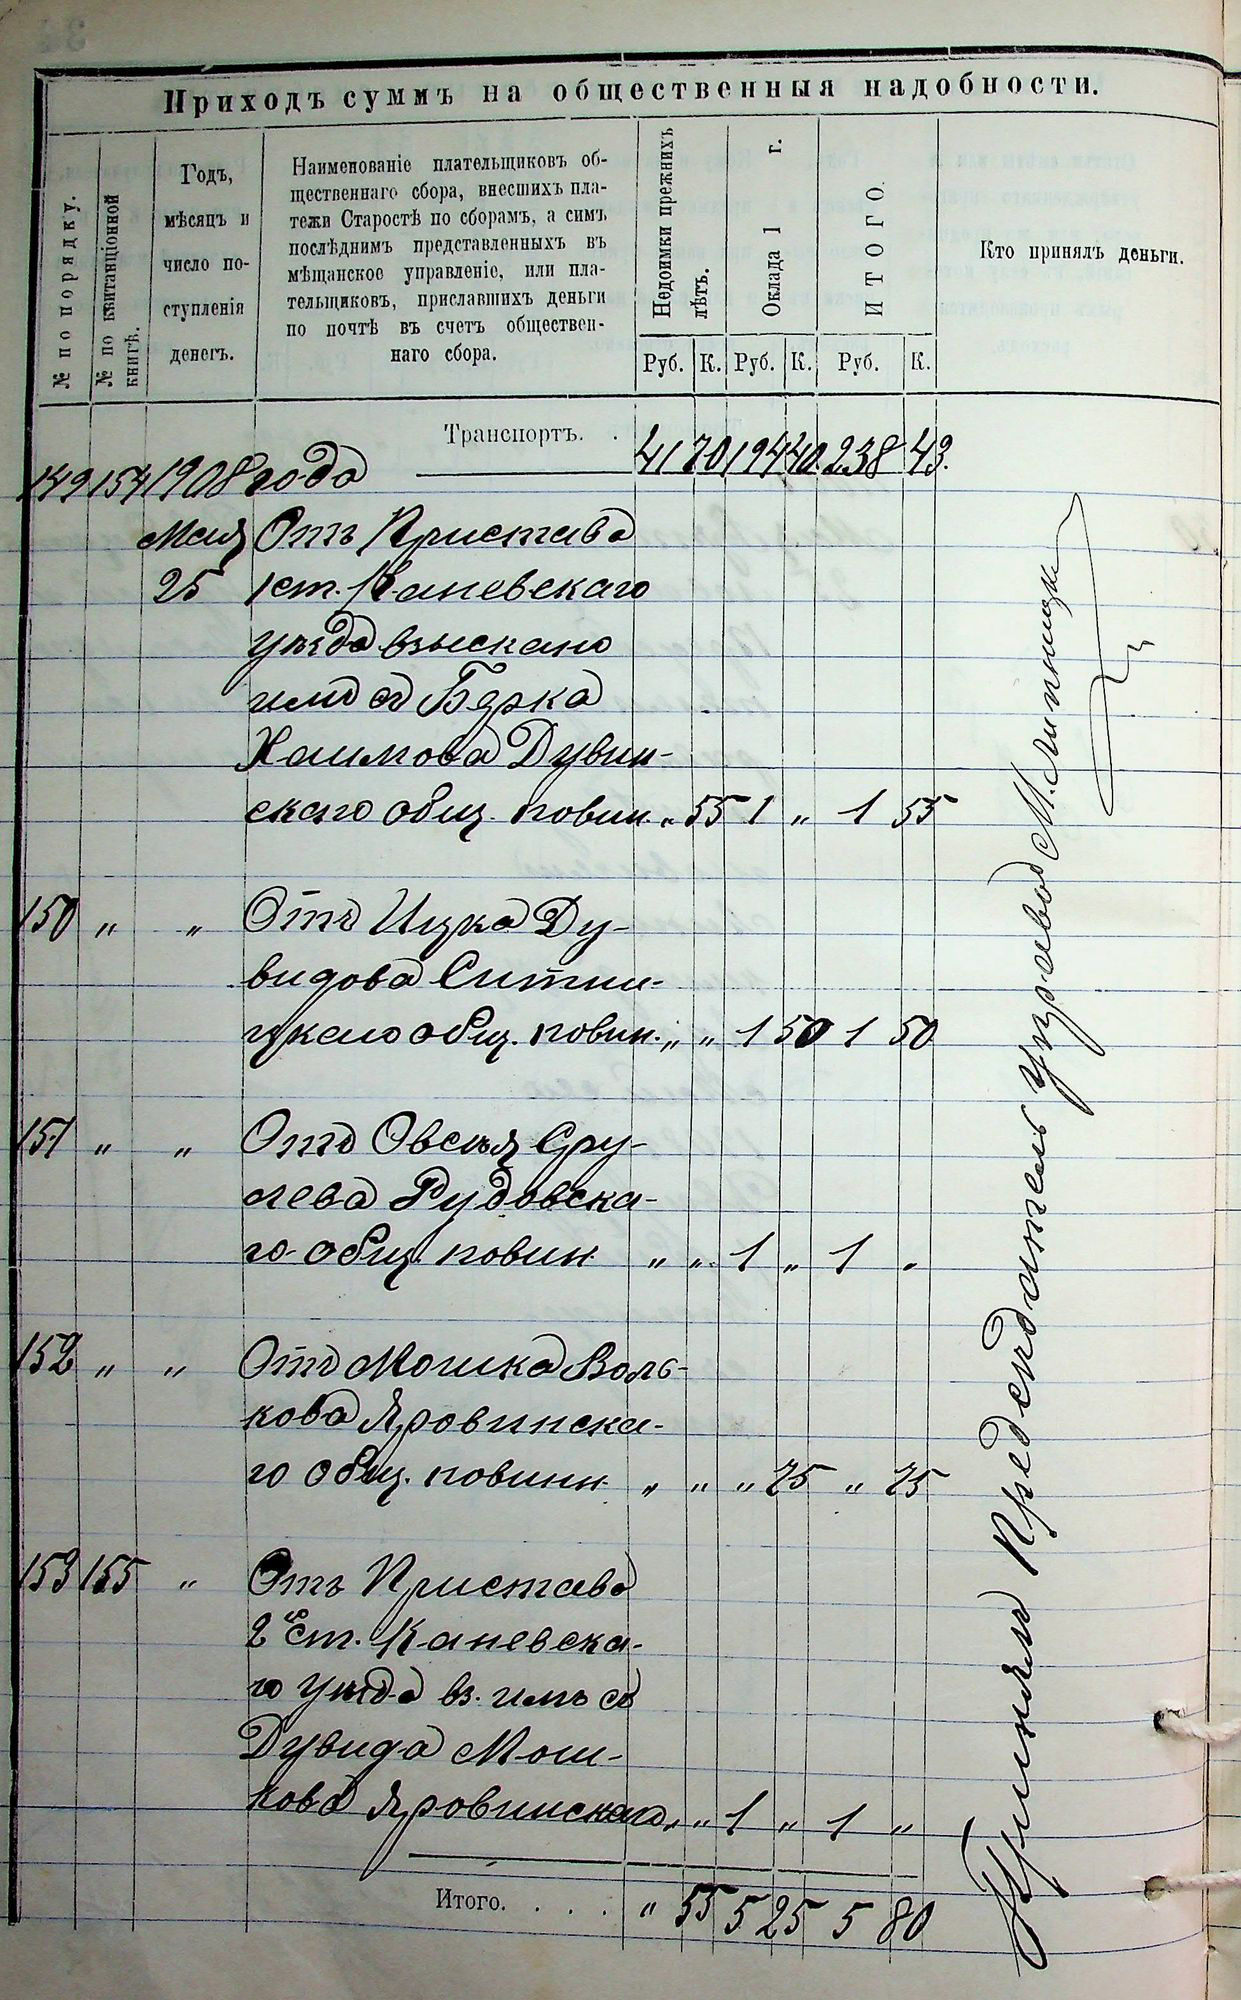 Приходъ суммъ на общественныя надобности.
№ по порядку.
№ по квитанціонной книгѣ.
Годъ,
мѣсяцъ и
число по-
ступленія
денегъ.
Наименованіе плательщиковъ об-
щественнаго сбора, внесшихъ пла-
тежи Старостѣ по сборамъ, а симъ
послѣднимъ представленныхъ въ
мѣщанское управленіе, или пла-
тельщиковъ, приславшихъ деньги
по почтѣ въ счетъ обществен-
наго сбора.
Недоимки прежнихъ лѣтъ.
Оклада 1 г.
ИТОГО.
Кто принялъ деньги.
Руб. К. Руб. К. Руб. К.
Транспортъ. . 41 70 194 40 238 43.
149 154 1908 года
Мая Отъ Пристава
25 1 ст. Каневскаго
уѣзда взыскано
имъ съ Берка
Хаимова Дувин-
скаго общ. повин. „ 55 1 „ 1 55
150 „ „ Отъ Ицка Ду-
видова Ситни-
цкаго общ. повин. „ „ 1 50 1 50
151 „ „ Отъ Овсѣя Сру-
лева Рудовска-
го общ. повин „ „ 1 „ 1 „
152 „ „ Отъ Мошка Воль-
кова Яровинска-
го общ. повинн „ „ „ 75 „ 75
153 155 „ Отъ Пристава
2 ст. Каневска-
го уѣзда вз. имъ съ
Дувида Мош-
кова Яровинскаго „ „ 1 „ 1 „
Итого. . . . . „ 55 5 25 5 80
Принялъ Предсѣдатель управы М. Липницкій